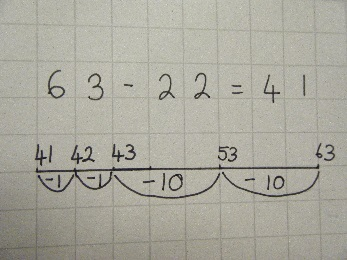 63 - 22 = 41
41 42 43 53 63
-1 -1 -10 -10